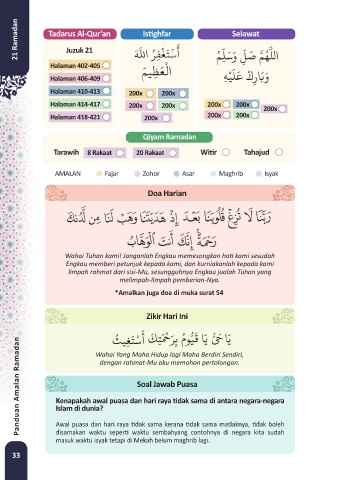 21 Ramadan
Tadarus Al-Qur'an
Istighfar
Selawat
Juzuk 21
Halaman 402-405
Halaman 406-409
Halaman 410-413
Halaman 414-417
Halaman 418-421
أَسْتَغْفِرُ اللَّهَ
الْعَظِيمَ
200x 200x
200x 200x
200x
اللَّهُمَّ صَلِّ وَسَلِّمْ
وَبَارِكْ عَلَيْهِ
200x 200x
200x 200x
200x
Qiyam Ramadan
Tarawih 8 Rakaat 20 Rakaat Witir Tahajud
AMALAN Fajar Zohor Asar Maghrib Isyak
Doa Harian
رَبَّنَا لَا تُزِغْ قُلُوبَنَا بَعْدَ إِذْ هَدَيْتَنَا وَهَبْ لَنَا مِن لَّدُنكَ
رَحْمَةً ۚ إِنَّكَ أَنتَ الْوَهَّابُ
Wahai Tuhan kami! Janganlah Engkau memesongkan hati kami sesudah
Engkau memberi petunjuk kepada kami, dan kurniakanlah kepada kami
limpah rahmat dari sisi-Mu, sesungguhnya Engkau jualah Tuhan yang
melimpah-limpah pemberian-Nya.
*Amalkan juga doa di muka surat 54
Zikir Hari Ini
يَا حَيُّ يَا قَيُّومُ بِرَحْمَتِكَ أَسْتَغِيثُ
Wahai Yang Maha Hidup lagi Maha Berdiri Sendiri,
dengan rahmat-Mu aku memohon pertolongan.
Soal Jawab Puasa
Kenapakah awal puasa dan hari raya tidak sama di antara negara-negara
Islam di dunia?
Awal puasa dan hari raya tidak sama kerana tidak sama matlaknya, tidak boleh
disamakan waktu seperti waktu sembahyang contohnya di negara kita sudah
masuk waktu isyak tetapi di Mekah belum maghrib lagi.
Panduan Amalan Ramadan
33